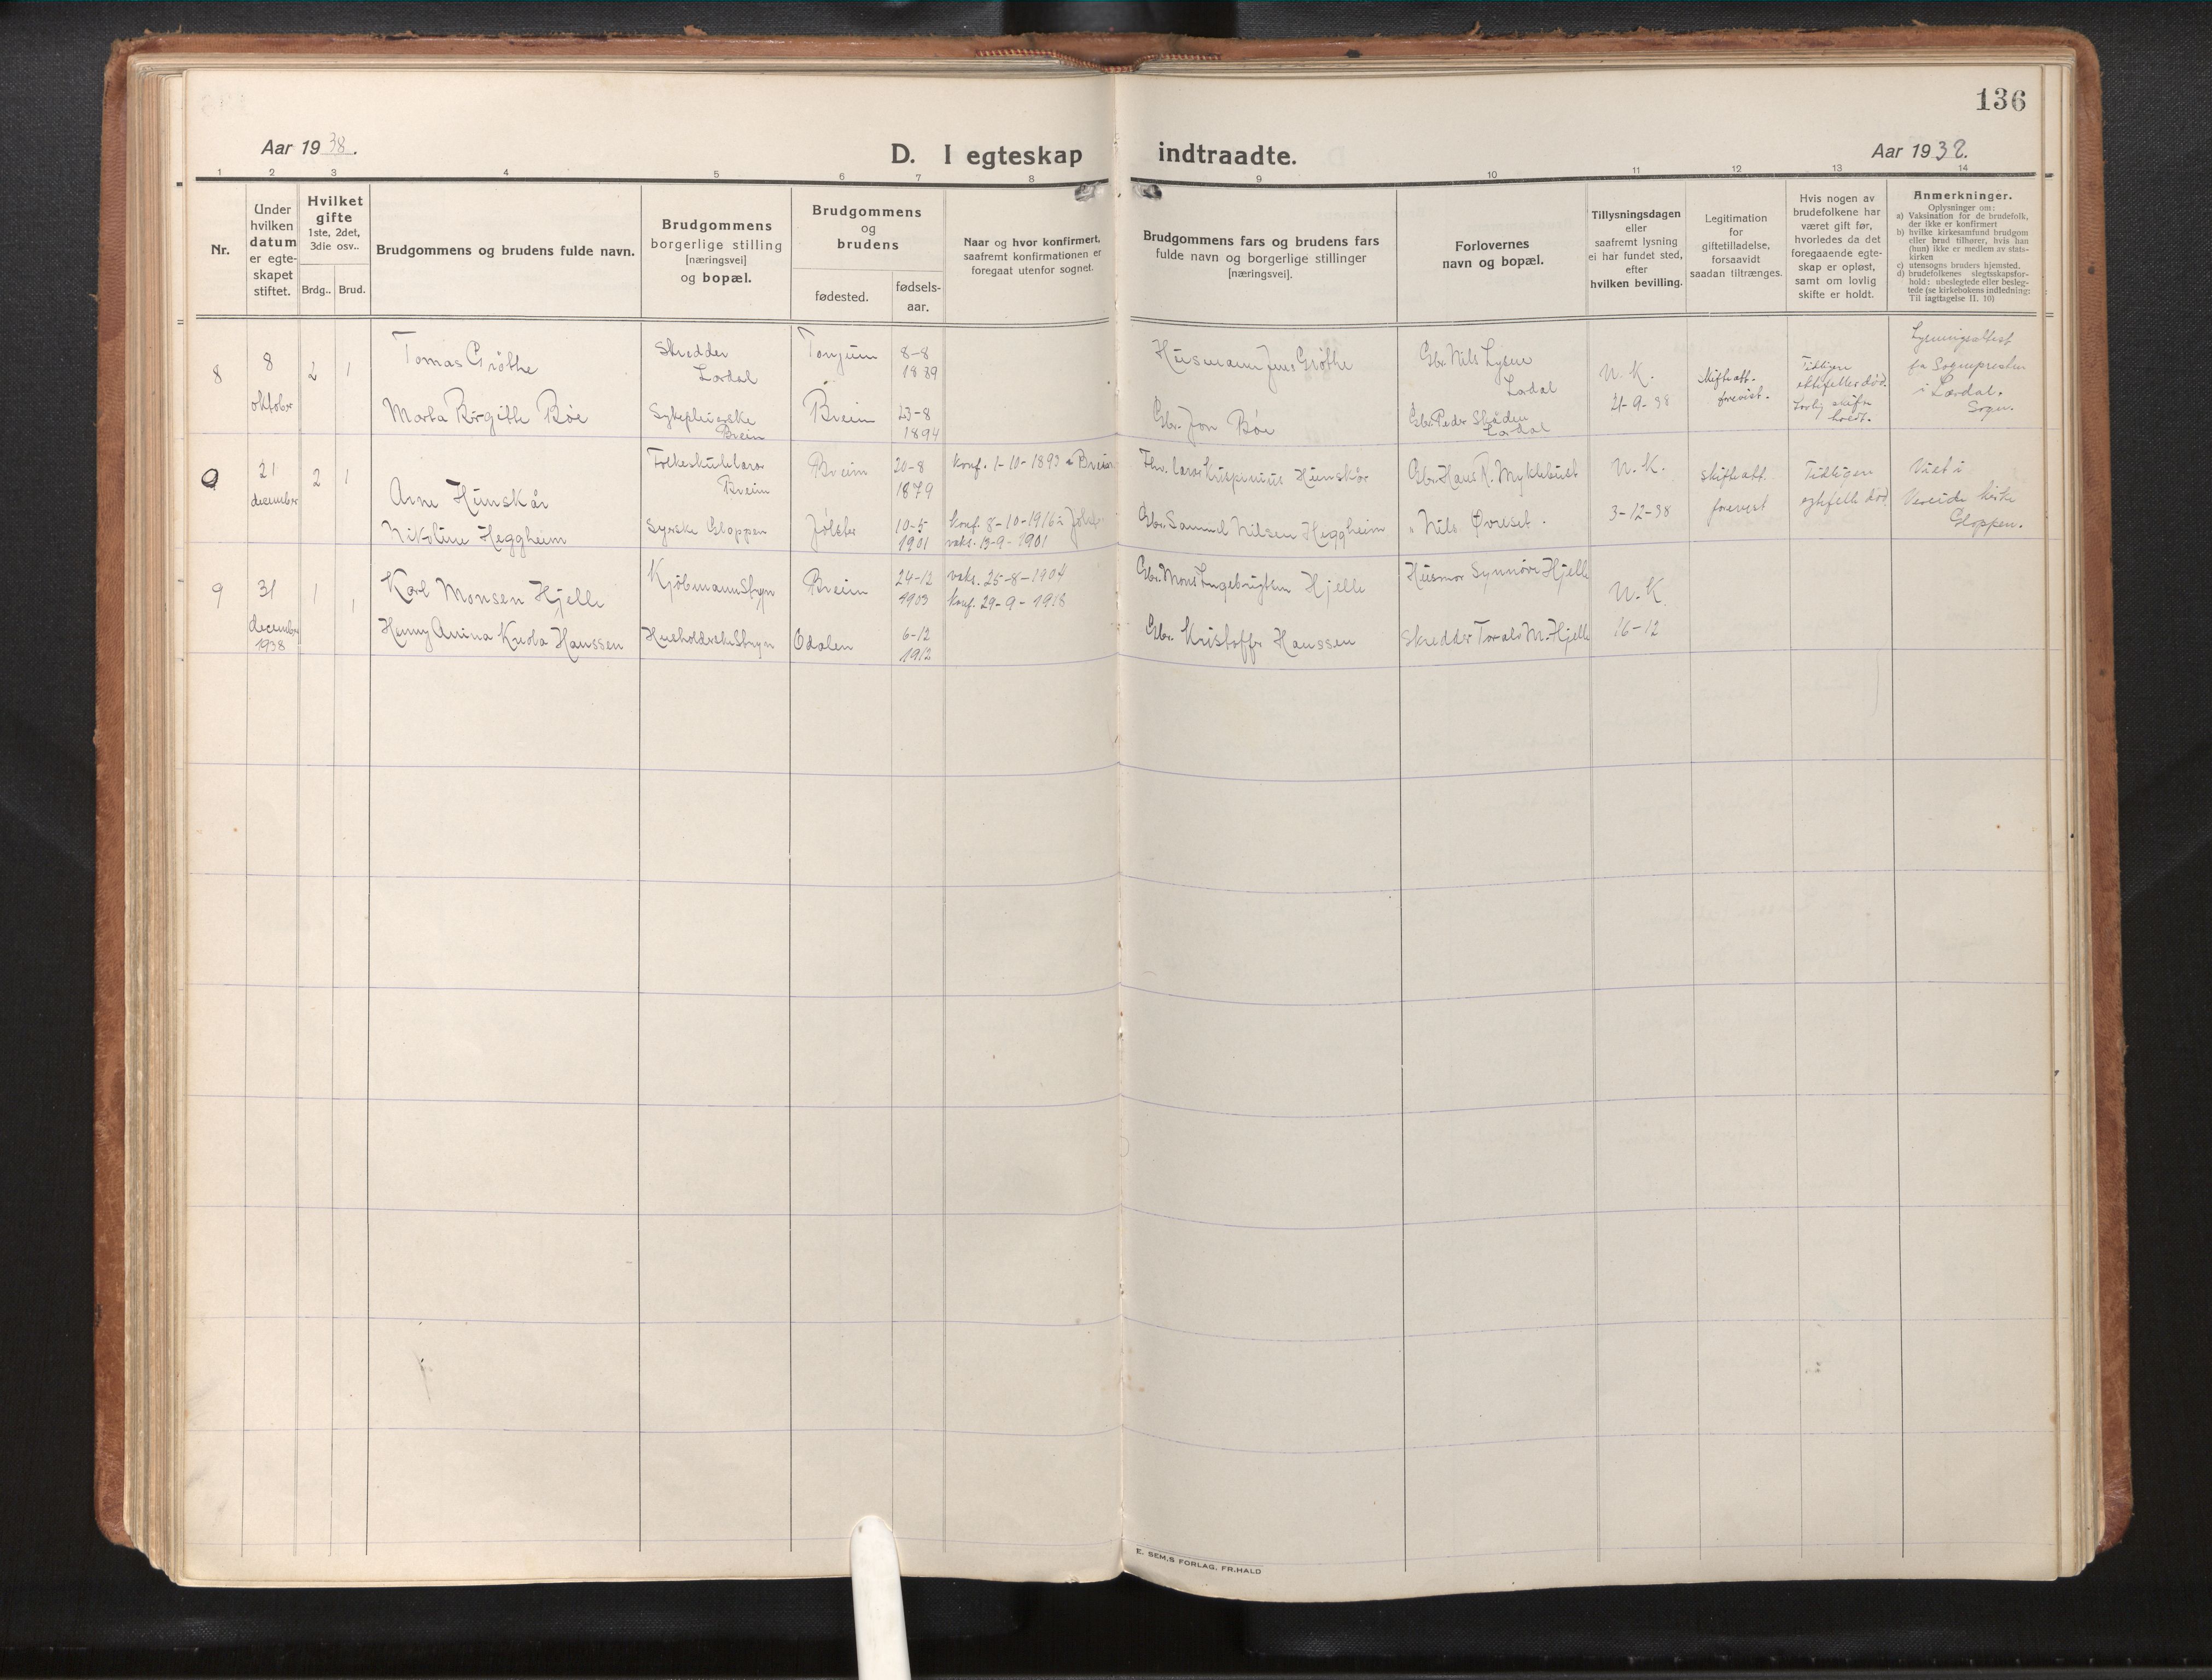 136
Aar 1938.
D. I egteskap indtraadte.
Aar 1938.
1 2 3 4 5 6 7 8 9 10 11 12 13 14
Nr.
Under
hvilken
datum
er egte-
skapet
stiftet.
Hvilket
gifte
1ste, 2det,
3die osv..
Brdg..
Brud.
Brudgommens og brudens fulde navn.
Brudgommens
borgerlige stilling
[næringsvei]
og bopæl.
Brudgommens
og
brudens
fødested.
fødsels-
aar.
Naar og hvor konfirmert,
saafremt konfirmationen er
foregaat utenfor sognet.
Brudgommens fars og brudens fars
fulde navn og borgerlige stillinger
[næringsvei].
Forlovernes
navn og bopæl.
Tillysningsdagen
eller
saafremt lysning
ei har fundet sted,
efter
hvilken bevilling.
Legitimation
for
giftetilladelse,
forsaavidt
saadan tiltrænges.
Hvis nogen av
brudefolkene har
været gift før,
hvorledes da det
foregaaende egte-
skap er opløst,
samt om lovlig
skifte er holdt.
Anmerkninger.
Oplysninger om:
a) Vaksination for de brudefolk,
der ikke er konfirmert
b) hvilke kirkesamfund brudgom
eller brud tilhører, hvis han
(hun) ikke er medlem av stats-
kirken
c) utensogns bruders hjemsted.
d) brudefolkenes slegtsskapsfor-
hold: ubeslegtede eller besleg-
tede (se kirkebokens indledning:
Til iagttagelse II. 10)
8
8
oktober
2
1
Tomas Grøthe
Skredder
Lærdal
Tonjum
8-8
1889
Husmann Jens Grøthe
Gbr. Nils Lysne
Lærdal
N. K.
21-9-38
skifteatt.
forevist.
Tidligere
ektefelle død.
Lovlig skifte
holdt.
Lysningsattest
fra Sognepresten
i Lærdal.
Sogn.
Marta Birgitte Bøe
Sykepleierske
Breim
Breim
23-8
1894
Gbr. Jon Bøe
Gbr. Peder
Lærdal
9
21
december
2
1
Arne Hunskår
Folkeskulelærar
Breim
Breim
20-8
1879
konf. 1-10-1893 i Breim
Fhv. lærar Krispinius Hunskår
Gbr. Hans R. Myklebust
N. K.
3-12-38
skifteatt.
forevist
Tidligere
egtefelle død
Viet i
Vereide kirke
Gloppen.
Nikoline Heggheim
Syerske Gloppen
Jølster
10-5
1901
konf. 8-10-1916 i Jølster
vaks. 13-9-1901
Gbr. Samuel Nilsen Heggheim
" Nils Øvreset.
9
31
december
1938
1
1
Karl Monsen Hjelle
Kjøbmann Stryn
Breim
24-12
1903
vaks. 25-8-1904
konf. 29-9-1918
Gbr. Mons Ingebrigtsen Hjelle
Husmor Synnøve Hjelle
N. K.
16-12
Henny Anina Hanssen
Husholderske Stryn
Odalen
6-12
1912
Gbr. Kristoffer Hanssen
Skredder Torald M. Hjelle
E. SEM,S FORLAG, FR.HALD